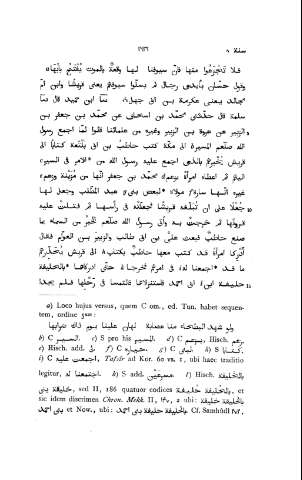 سنة ٨ ١٦٢٦
فلا تَجْزَعُوا منها فإنّ سيوفنا لها وقعةٌ بالموت يُفْتَحُ بابُها
وقول حسّان بأيدى رجال لم يسلّوا سيوفهم يعنى قريشًا وابن امّ
مجالد يعنى عكرمة بن ابى جهل، نما ابن حميد قال نما
سلمة قال حدّثنى محمد بن اسحاق عن محمد بن جعفر بن
الزبير عن عروة بن الزبير وغيره من علمائنا قلوا لمّا اجمع رسول
الله صلعم المسيرة الى مكّة كتب حاطب بن ابى بلتعة كتابًا الى
قريش يُخْبرهم بالذى اجمع عليه رسول الله من الامر فى السير
اليهم ثم اعطاه امرأة يزعم محمد بن جعفر انّها من مُزينة وزعم
غيره انّها سارة مولاة لبعض بنى عبد المطّلب وجعل لها
جُعْلا على ان تُبَلّغه قريشًا فجعلتْه فى رأسها ثم فتلت عليه
قرونها ثم خرجت به وأتى رسول الله صلعم الخبر من السماء بما
صنع حاطب فبعث علىّ بن ابى طالب والزبير بن العوّام فقال
أدركا امرأة قد كتب معها حاطب بكتاب الى قريش يُحذّرهم
ما قد اجمعنا له فى امرهم فخرجا حتى ادركاها بالحليفة
حليفة ابن ابى احمد فاستنزلاها فالتمسا فى رَحْلها فلم يجدا
a) Loco hujus versus, quem C om., ed. Tun. habet sequen-
tem, ordine 5um:
ولو شهد البطحاء منا عصابة لهان علينا يوم ذاك ضرابها
b) C المسير. c) S pro his المسير. d) C يزعم, Hisch. زعم.
e) Hisch. add. لى. f) C
i) C اجمعت عليه, Tafsîr ad Kor. 60 vs. 1, ubi haec traditio
legitur, اجتمعنا له. k) S add. l) Hisch. بالخليقة
خليقة بنى, sed II, 186 quatuor codices بالحليفة حليفة, et
sic idem discrimen Chron. Mekk. II, ubi
بنى احمد et Now., ubi: بالحليفة حليفة بنى احمد. Cf. Samhûdî